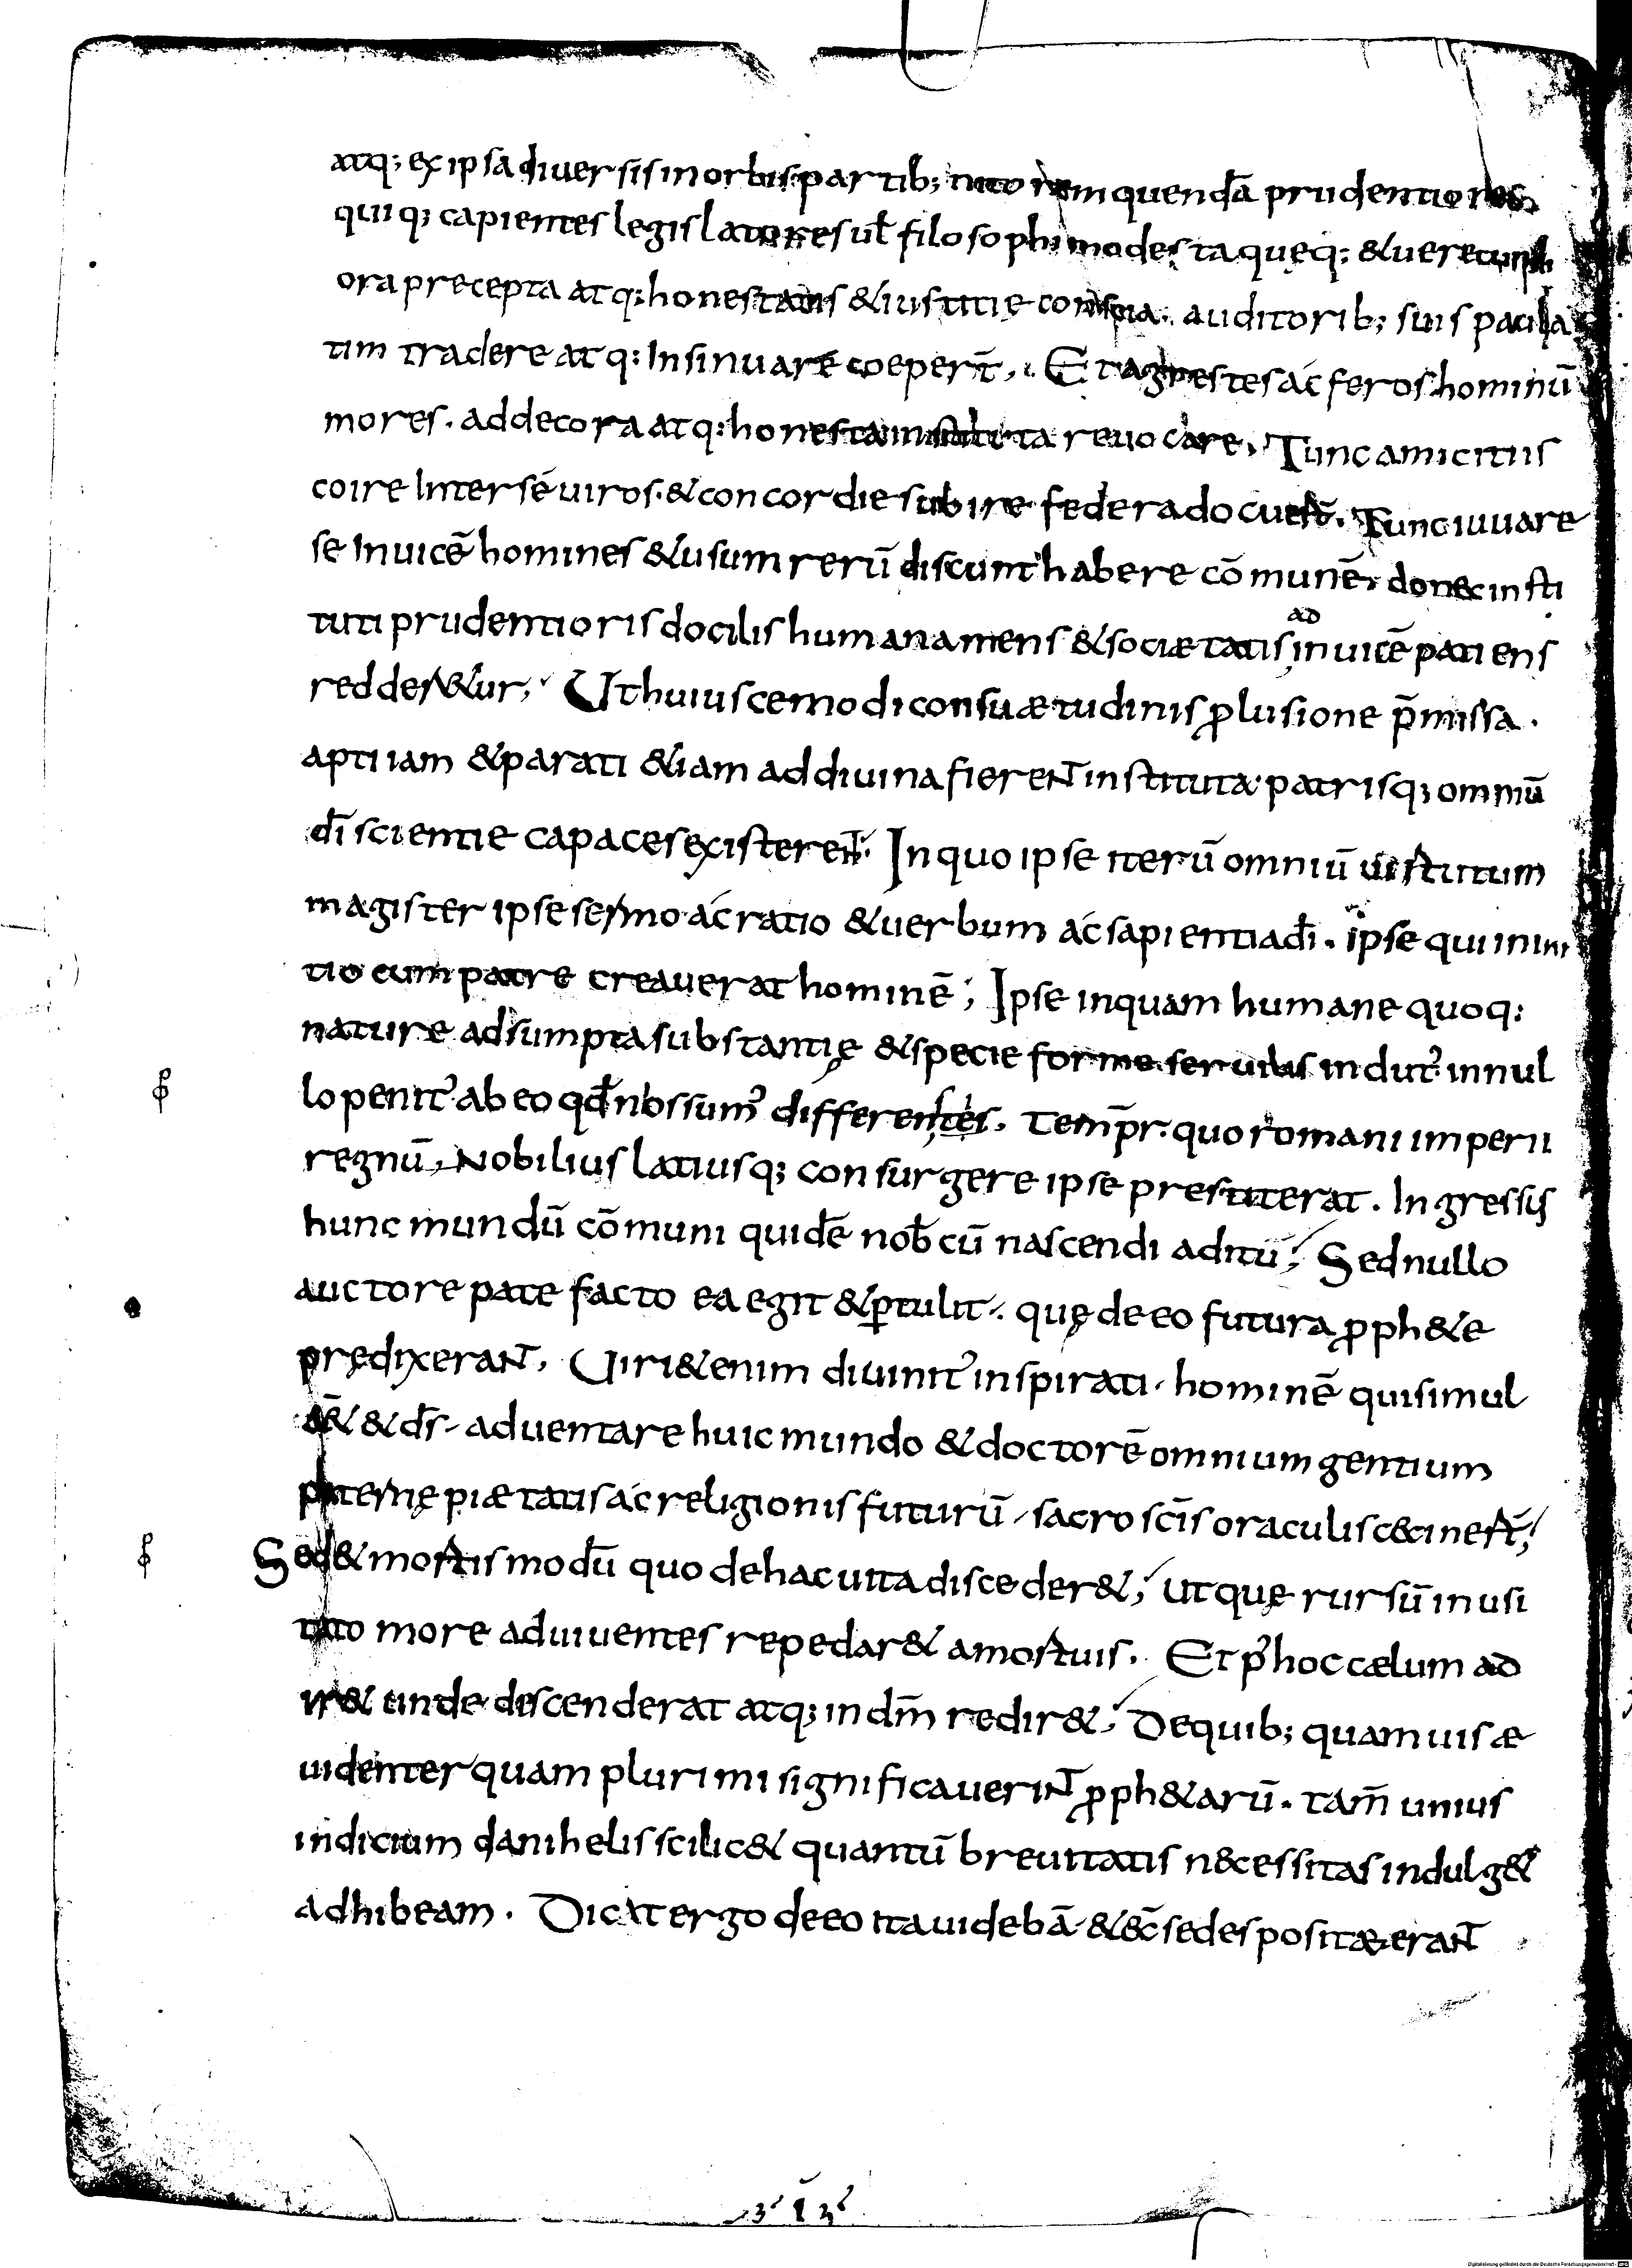 atq; ex ipsa diuersis in orbis partib; nitorem quendā prudentiores
quiq; capientes legislatores uł filosophi modesta queq; & uerecund
ora precepta atq; honestatis & iustitie conscia. auditorib; suis paula
tim tradere atq; Insinuare coeper̄t,. Et agrestes ac feros hominū
mores. ad decora atq; honesta instituta reuocare. Tunc amicitiis
coire Inter sé uiros. & concordie subire federa docuer̄t. Tunc iuuare
se Inuicē homines & usum rerū discunt habere cōmunē. donec insti
tuti prudentioris docilis humana mens & sociætatis ad inuicē patiens
redder&ur; Ut huiuscemodi consuætudinis ꝓlusione p̄missa.
apti iam & parati &iam ad diuina fierent instituta. patrisq; omniū
dī scientie capaces existerent. In quo ipse iterū omniū uirtutum
magister ipse sermo ac ratio & uerbum ac sapientia dī. ipse qui in ini
tio cum patre creauerat hominē; Ipse inquam humane quoq;
nature adsumpta substantię & specie forme seruilis indut᾽ in nul
lo penit᾽ ab eo qđ nos sum᾽ differentes. Temp̄r. quo romani imperii
regnū, Nobilius latiusq; consurgere ipse prestiterat. Ingressis
hunc mundū cōmuni quidē nob̄ cū nascendi aditū; Sed nullo
auctore patefacto ea egit & ꝑtulit. quę de eo futura ꝓph&e
prędixerant. Uiri &enim diuinit᾽ inspirati. hominē qui simul
ē& & dī- aduentare huic mundo & doctorē omnium gentium
paternę piætatis ac religionis futurū, sacro scīs oraculis cecinert̄;
Sed & mortis modū quo de hac uita disceder&; utquę rursū inusi
tato more ad uiuentes repedar& a mortuis. Et p᾽ hoc cælum ad
ir& unde descenderat atq; in dm̄ redir&; De quib; quamuis æ
uidenter quam plurimi significauerint ꝓph&arū. tam̄ unius
indicium danihelis scilic& quantū breuitatis necessitas indulg&
adhibeam. Dicit ergo de eo ita uidebā & ecc̄ sedes positæ erant